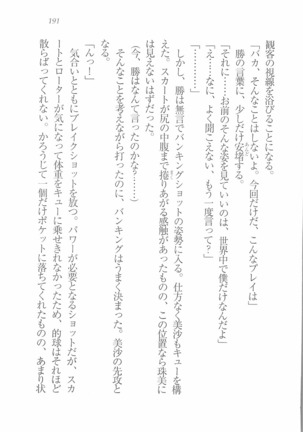 191
観客の視線を浴びることになる。
「バカ、そんなことはしないよ。今回だけだ、こんなプレイは」
勝の言葉に、少しだけ安堵する。
「それに……お前のそんな姿を見ていいのは、世界中で僕だけなんだよ」
「え……なに、よく聞こえない、もう一度言って？」
「…………」
しかし、勝は無言でバンキングショットの姿勢に入る。仕方なく美沙もキューを構
えた。スカートが尻の中腹まで捲りあがる感触があったものの、この位置なら珠美に
は見えないはずだった。
（今、勝はなんて……？）
そんなことを考えながら打ったのに、バンキングはうまく決まった。美沙の先攻と
なる。
「んっ」
気合いとともにブレイクショットを放つ。パワーが必要となるショットだが、スカ
ートとローターが気になって体重をキューに乗せきれなかったため、的球はそれほど
散らばってくれない。かろうじて一個だけポケットに落ちてくれたものの、あまり状